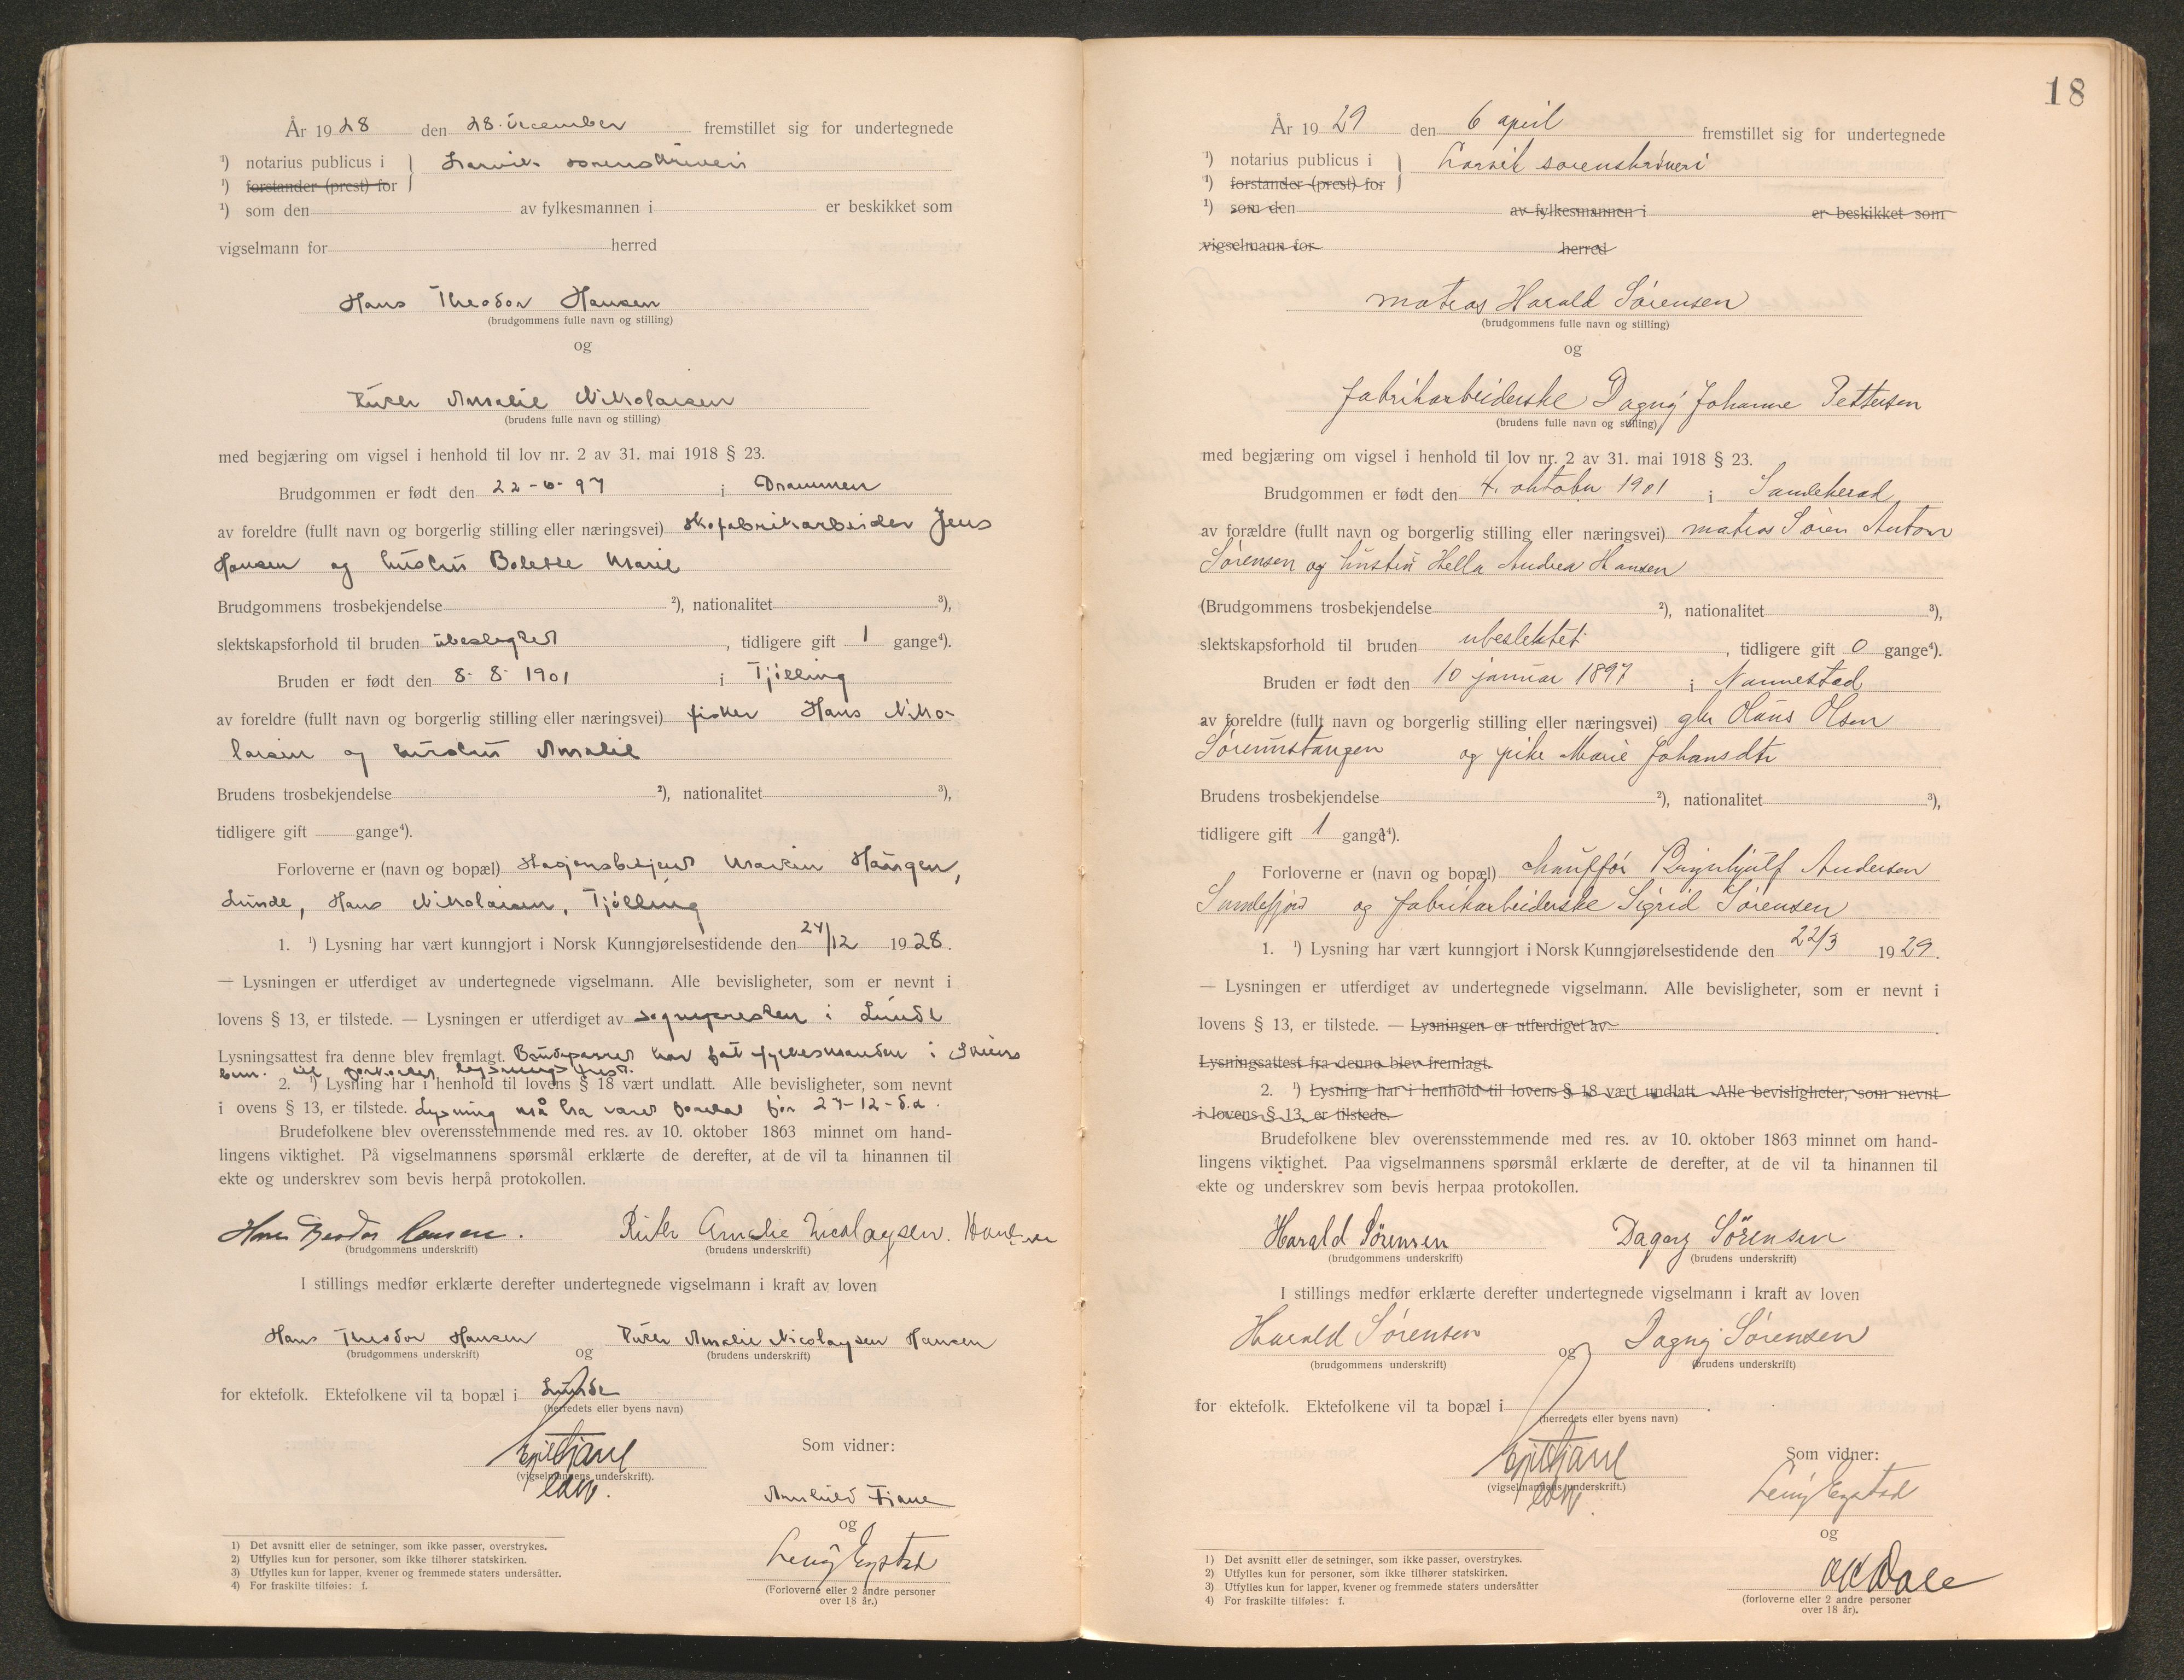 År 1928 den 28. december fremstillet sig for undertegnede
¹) notarius publicus i } Larvik sorenskriveri
¹) forstander (prest) for
¹) som den av fylkesmannen i er beskikket som
vigselmann for herred
Hans Theodor Hansen
(brudgommens fulle navn og stilling)
og
Ruth Amalie Nikolaisen
(brudens fulle navn og stilling)
med begjæring om vigsel i henhold til lov nr. 2 av 31. mai 1918 § 23.
Brudgommen er født den 22-6-97 i Drammen
av foreldre (fullt navn og borgerlig stilling eller næringsvei) skofabrikarbeider Jens
Hansen og hustru Bolette Marie
Brudgommens trosbekjendelse ²), nationalitet ³),
slektskapsforhold til bruden ubeslegtet, tidligere gift 1 gange⁴).
Bruden er født den 8-8-1901 i Tjølling
av foreldre (fullt navn og borgerlig stilling eller næringsvei) fisker Hans Niko-
laisen og hustru Amalie
Brudens trosbekjendelse ²), nationalitet ³),
tidligere gift gange⁴).
Forloverne er (navn og bopæl) Stasjonsbetjent Martin Haugen,
Lunde, Hans Nikolaisen, Tjølling
1. ¹) Lysning har vært kunngjort i Norsk Kunngjørelsestidende den 24/12 1928.
— Lysningen er utferdiget av undertegnede vigselmann. Alle bevisligheter, som er nevnt i
lovens § 13, er tilstede. — Lysningen er utferdiget av sognepresten i Lunde
Lysningsattest fra denne blev fremlagt. Brudeparret har fåt fylkesmanden i Skiens
bem. til forkortet lysningsfrist.
2. ¹) Lysning har i henhold til lovens § 18 vært undlatt. Alle bevisligheter, som nevnt
i ovens § 13, er tilstede. Lysning må ha været foretat før 27-12-d.a.
Brudefolkene blev overensstemmende med res. av 10. oktober 1863 minnet om hand-
lingens viktighet. På vigselmannens spørsmål erklærte de derefter, at de vil ta hinannen til
ekte og underskrev som bevis herpå protokollen.
Hans Theodor Hansen. Ruth Amalie Nicolaysen. Hansen
(brudgommens underskrift) (brudens underskrift)
I stillings medfør erklærte derefter undertegnede vigselmann i kraft av loven
Hans Theodor Hansen og Ruth Amalie Nicolaysen Hansen
(brudgommens underskrift) (brudens underskrift)
for ektefolk. Ektefolkene vil ta bopæl i Lunde
(herredets eller byens navn)
Som vidner:
(vigselmannens underskrift).
Arnhild Tjane
og
Leny Enstad
(Forloverne eller 2 andre personer
over 18 år.)
1) Det avsnitt eller de setninger, som ikke passer, overstrykes.
2) Utfylles kun for personer, som ikke tilhører statskirken.
3) Utfylles kun for lapper, kvener og fremmede staters undersåtter.
4) For fraskilte tilføies: f.
18
År 1929 den 6 april fremstillet sig for undertegnede
¹) notarius publicus i } Larvik sorenskriveri
¹) forstander (prest) for
¹) som den av fylkesmannen i er beskikket som
vigselmann for herred
matros Harald Sørensen
(brudgommens fulle navn og stilling)
og
fabrikarbeiderske Dagny Johanne Pettersen
(brudens fulle navn og stilling)
med begjæring om vigsel i henhold til lov nr. 2 av 31. mai 1918 § 23.
Brudgommen er født den 4. oktober 1901 i Sandeherad
av forældre (fullt navn og borgerlig stilling eller næringsvei) matros Søren Anton
Sørensen og hustru Hella Andrea Hansen
(Brudgommens trosbekjendelse ²), nationalitet ³),
slektskapsforhold til bruden ubeslektet, tidligere gift 0 gange⁴).
Bruden er født den 10 januar 1897 i Nannestad
av foreldre (fullt navn og borgerlig stilling eller næringsvei) gbr Olaus Olsen
Sørumstangen og pike Marie Johansdtr
Brudens trosbekjendelse ²), nationalitet ³),
tidligere gift 1 gange⁴).
Forloverne er (navn og bopæl) chauffør Brynhjulf Andersen
Sandefjord og fabrikarbeiderske Sigrid Sørensen
1. ¹) Lysning har vært kunngjort i Norsk Kunngjørelsestidende den 22/3 1929.
— Lysningen er utferdiget av undertegnede vigselmann. Alle bevisligheter, som er nevnt i
lovens § 13, er tilstede. — Lysningen er utferdiget av
Lysningsattest fra denne blev fremlagt.
2. ¹) Lysning har i henhold til lovens § 18 vært undlatt. Alle bevisligheter, som nevnt
i lovens § 13, er tilstede.
Brudefolkene blev overensstemmende med res. av 10. oktober 1863 minnet om hand-
lingens viktighet. Paa vigselmannens spørsmål erklærte de derefter, at de vil ta hinannen til
ekte og underskrev som bevis herpaa protokollen.
Harald Sørensen Dagny Sørensen
(brudgommens underskrift) (brudens underskrift)
I stillings medfør erklærte derefter undertegnede vigselmann i kraft av loven
Harald Sørensen og Dagny Sørensen
(brudgommens underskrift) (brudens underskrift)
for ektefolk. Ektefolkene vil ta bopæl i .
(herredets eller byens navn)
Som vidner:
(vigselmannens underskrift.)
Leny Enstad
og
OK Dale
(forloverne eller 2 andre personer
over 18 år).
1) Det avsnitt eller de setninger, som ikke passer, overstrykes.
2) Utfylles kun for personer, som ikke tilhører statskirken.
3) Utfylles kun for lapper, kvener og fremmede staters undersåtter
4) For fraskilte tilføles: f.